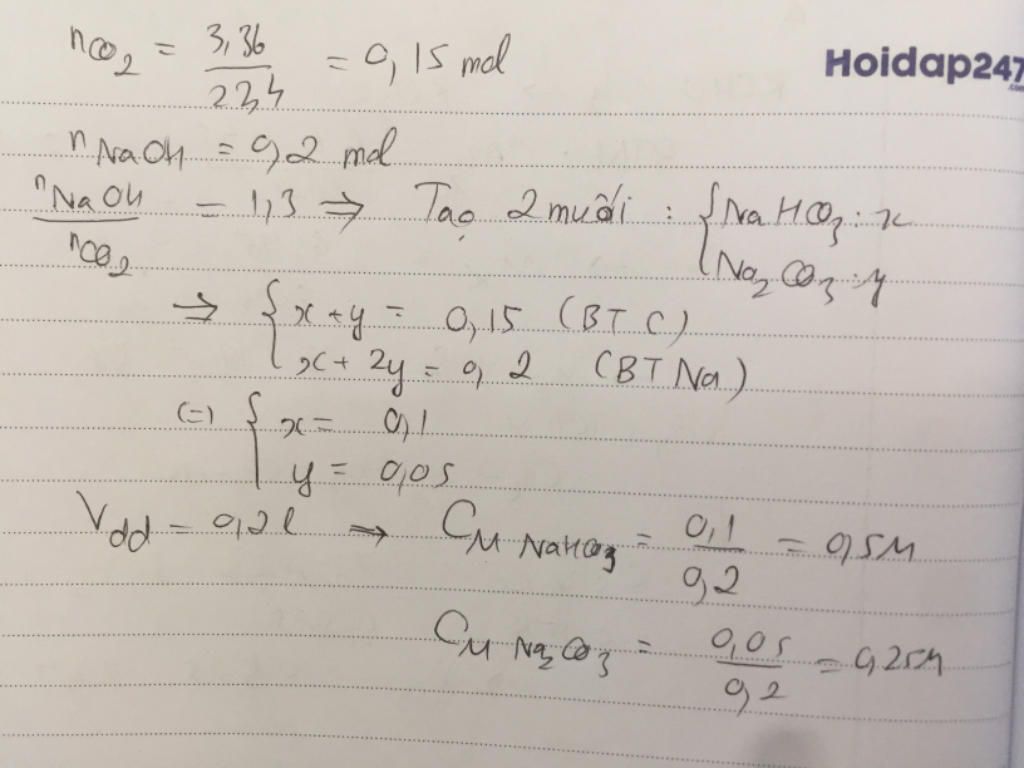 nCO2 = 3,36 / 22,4 = 0,15 mol
Hoidap247.com
nNaOH = 0,2 mol
nNaOH / nCO2 = 1,3 => Tạo 2 muối : { NaHCO3 : x
Na2CO3 : y
=> { x + y = 0,15 (BT C)
x + 2y = 0,2 (BT Na)
(=) { x = 0,1
y = 0,05
Vdd = 0,2l → CM NaHCO3 = 0,1 / 0,2 = 0,5M
CM Na2CO3 = 0,05 / 0,2 = 0,25M